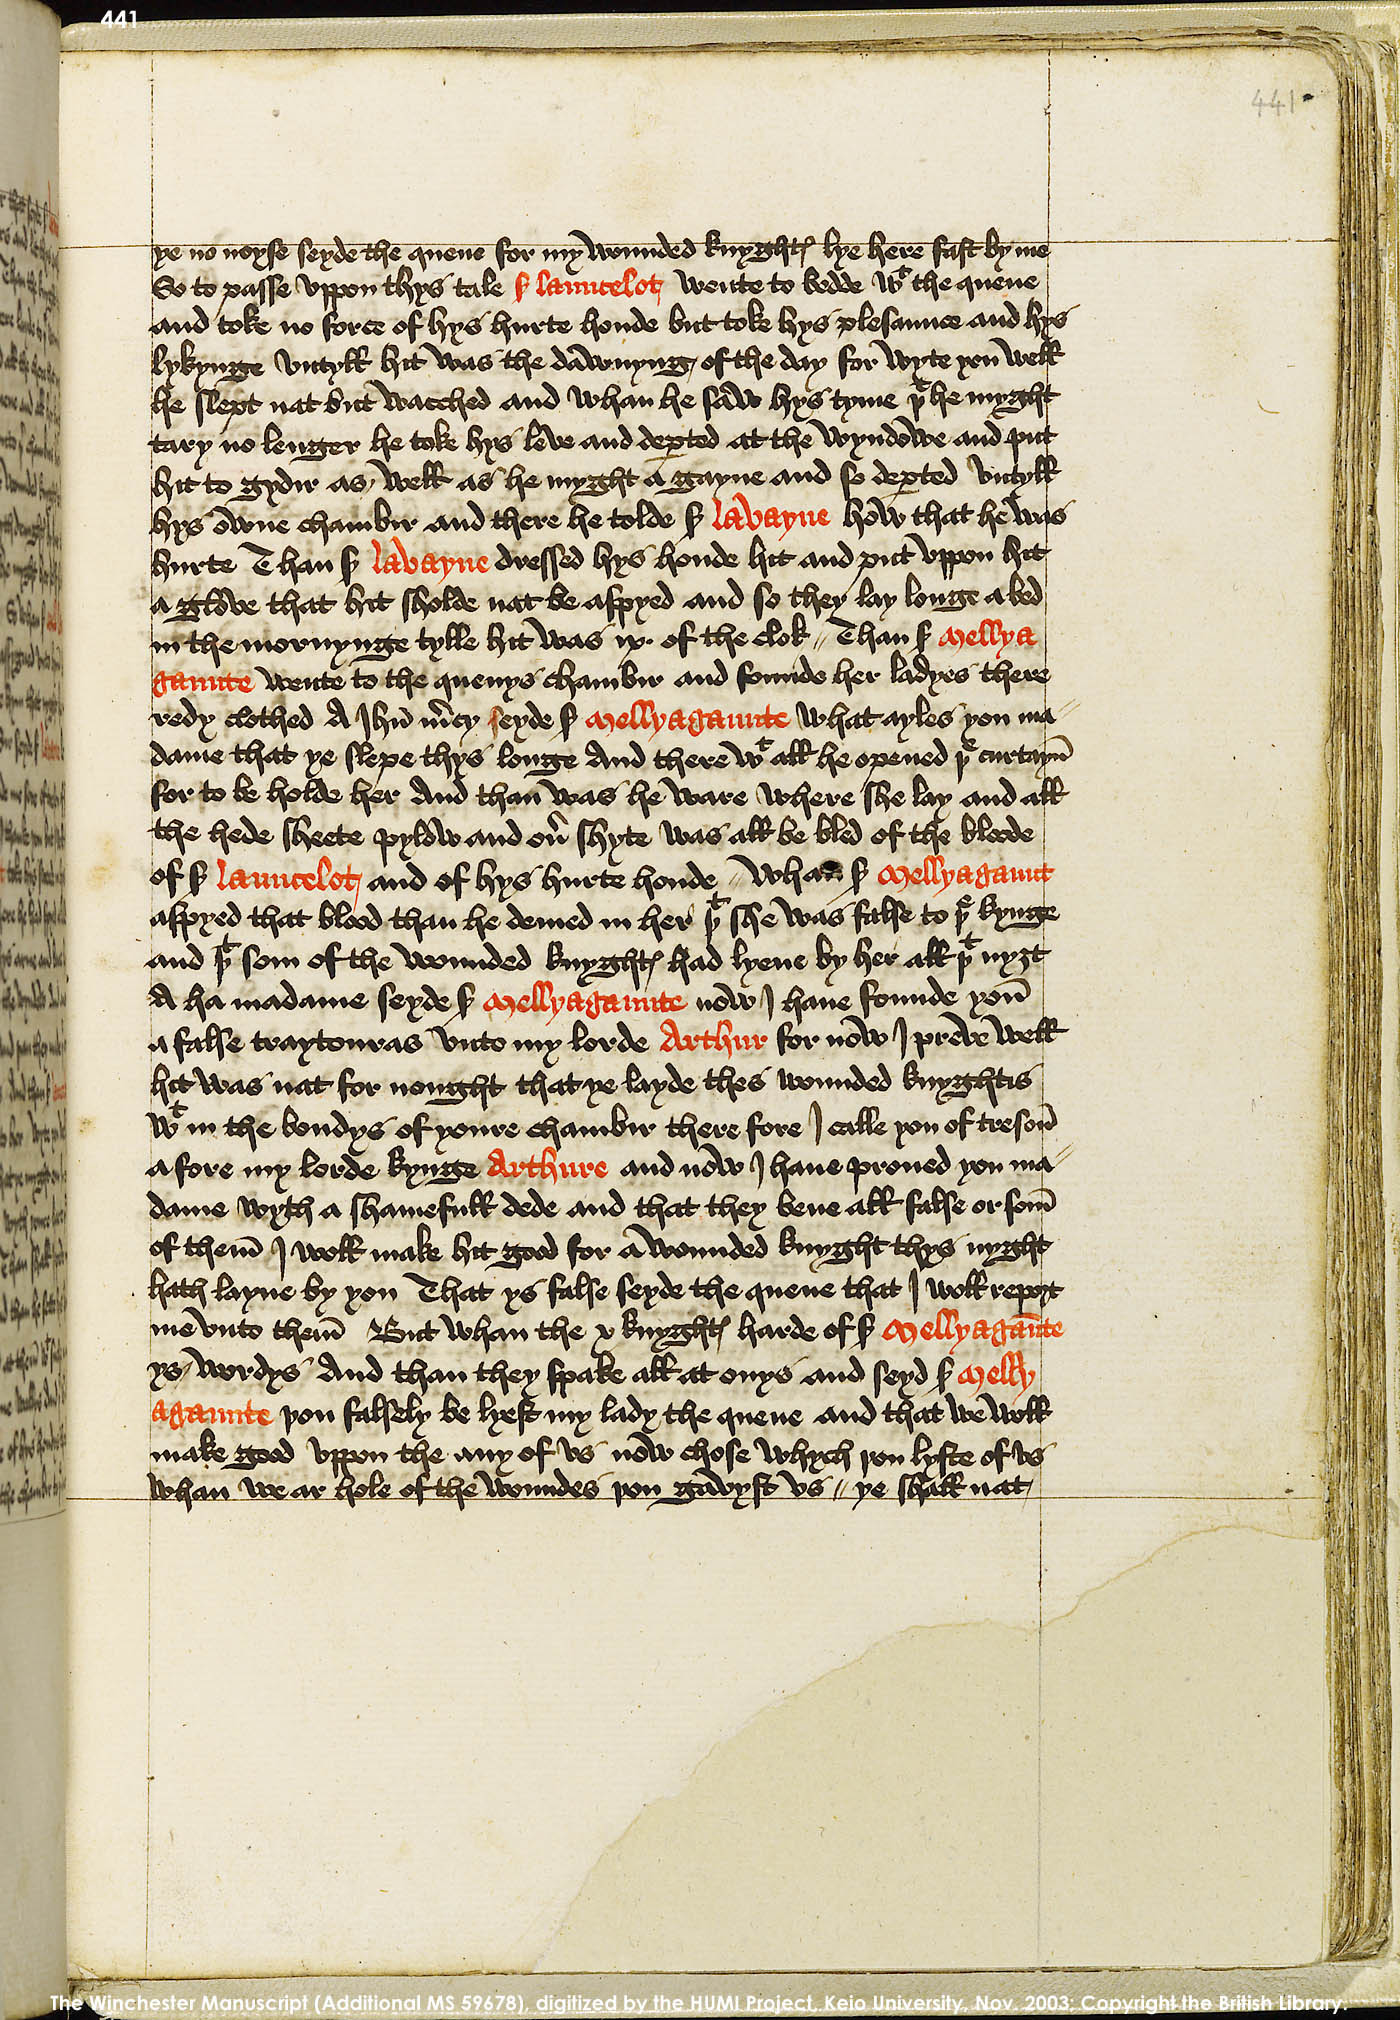 441
441
ye no noyse seyde the quene for my wounded knyghtꝭ lye here fast by me
So to passe vppon thys tale sʳ launcelot wente to bedde wᵗ the quene
and toke no force of hys hurte honde but toke hys plesaunce and hys
lykynge vntyll hit was the dawnyng of the day for wyte you well
he slept nat but wacched and whan he saw hys tyme þᵗ he myght
tary no lenger he toke hys leve and deꝑted at the wyndowe and put
hit to gydir as well as he myght a gayne and so deꝑted vntyll
hys owne chambir and there he tolde sʳ lavayne how that he was
hurte Than sʳ lavayne dressed hys honde hit and put vppon hit
a glove that hit sholde nat be aspyed and so they lay longe a bed
in the mornynge tylle hit was ix. of the clok // Than sʳ Mellya
gaunte wente to the quenys chambir and founde her ladyes there
redy clothed A Jhū m̄cy seyde sʳ Mellyagaunte what ayles you ma//
dame that ye slepe thys longe And there wᵗ all he opened þᵉ curtayn̄
for to be holde her And than was he ware where she lay and all
the hede sheete pylow and ou̓ shyte was all be bled of the bloode
of sʳ launcelot and of hys hurte honde // Whan sʳ Mellyagaunt
aspyed that blood than he demed in her þᵗ she was false to þᵉ kynge
and þᵗ som of the wounded knyghtꝭ had lyene by her all þᵗ nyȝt
A ha madame seyde sʳ Mellyagaunte now J haue founde you
a false traytouras vnto my lorde Arthur for now J preve well
hit was nat for nought that ye layde thes wounded knyghtis
wᵗ in the bondys of youre chambir there fore J calle you of tresoun
a fore my lorde kynge Arthure and now J haue proued you ma//
dame wyth a shamefull dede and that they bene all false or som̄
of them̄ J woll make hit good for a wounded knyght thys nyght
hath layne by you That ys false seyde the quene that J woll report
me vnto them̄ But whan the x knyghtꝭ harde of sʳ Mellyagaūte
ys wordys And than they spake all at onys and seyd sʳ Melly
agaunte þou falsely be lyest my lady the quene and that we woll
make good vppon the any of vs now chose whych þou lyste of vs
whan we ar hole of the woundes þou gavyst vs // ye shall nat
The Winchester Manuscript (Additional MS 59678), digitized by the HUMI Project, Keio University, Nov. 2003; Copyright the British Library.